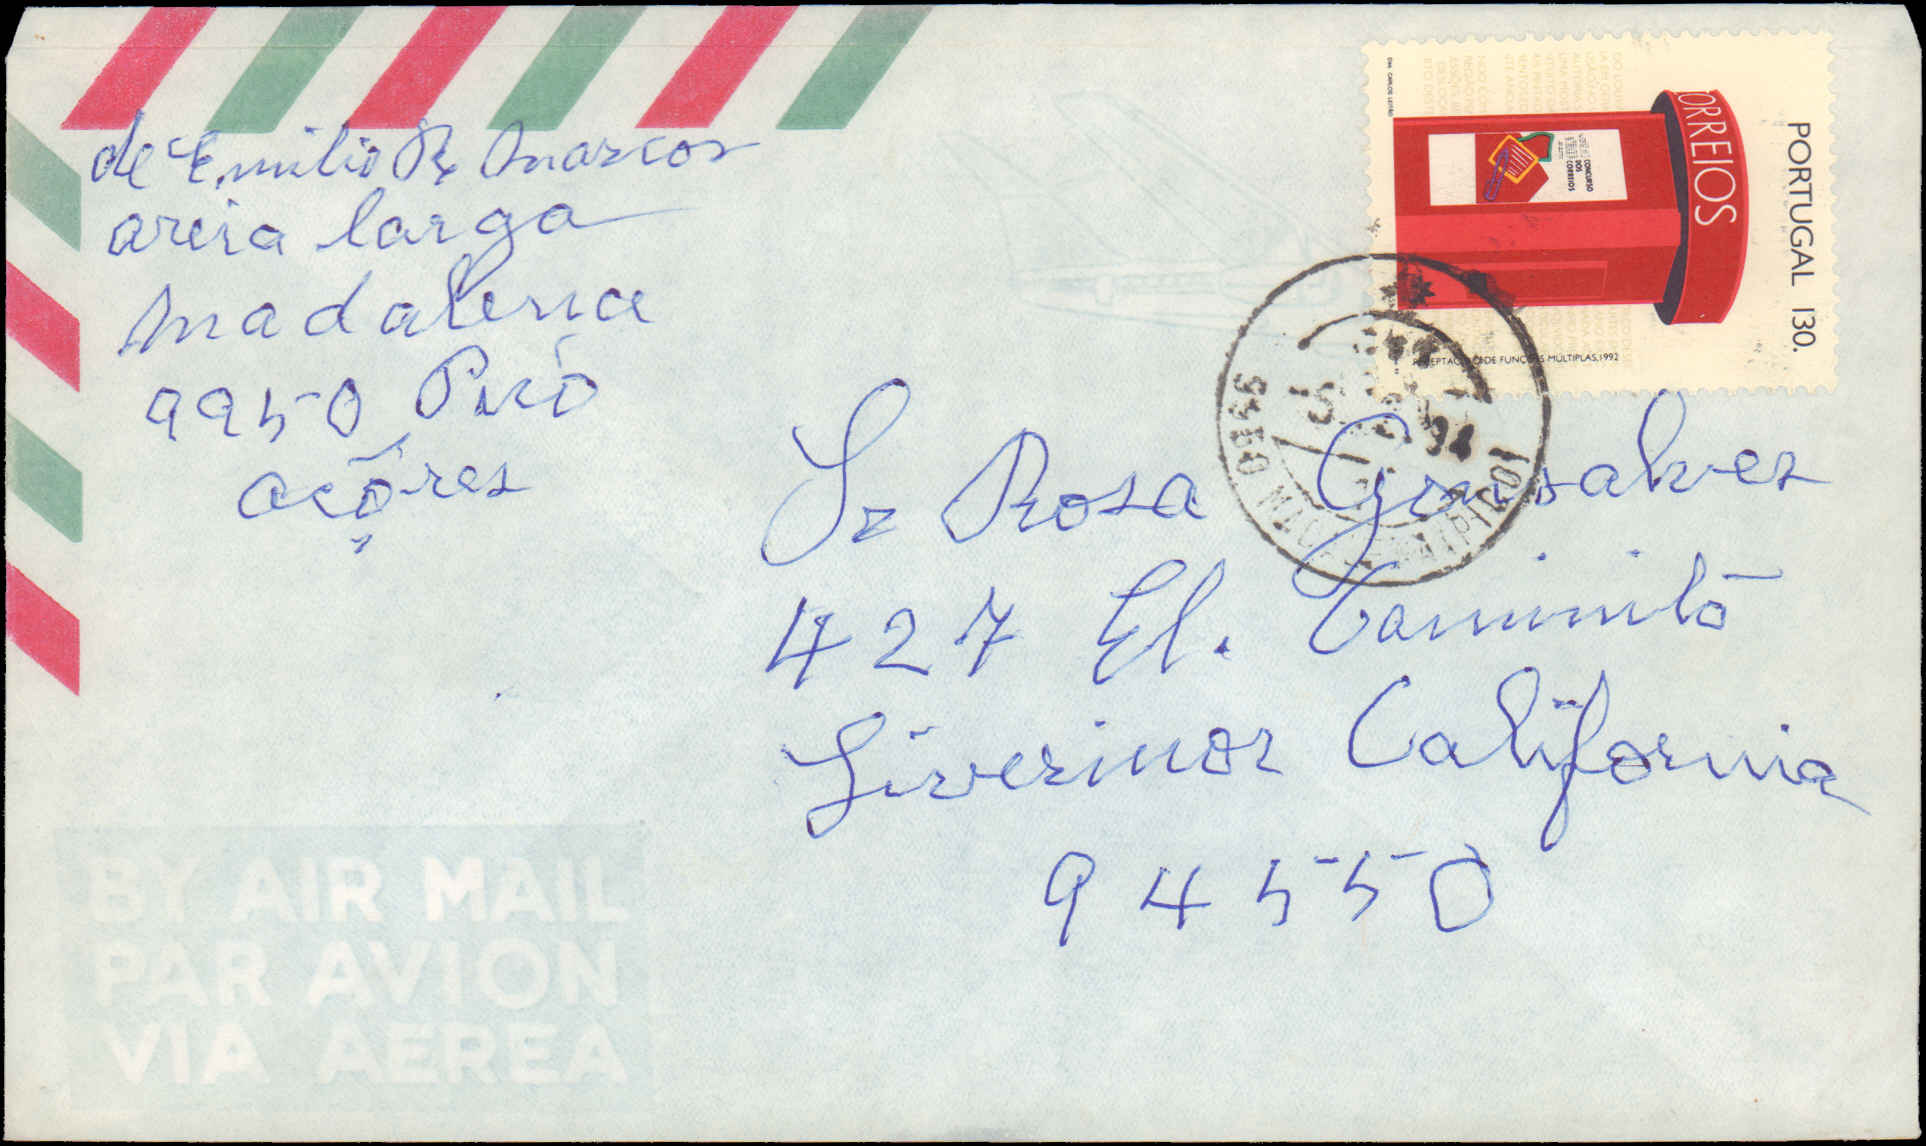 de Emilio R Marcos
areia larga
Madalena
9950 Pico
açôres
PORTUGAL 130.
CORREIOS
CONCURSO
DOS
CORREIOS
RECEPTÁCULO DE FUNÇÕES MÚLTIPLAS, 1992
DIM. CARLOS LEITÃO
9950 MADALENA (PICO)
94
Sr Rosa Gonsalves
427 El. Caminitō
Livermor California
94550
BY AIR MAIL
PAR AVION
VIA AEREA